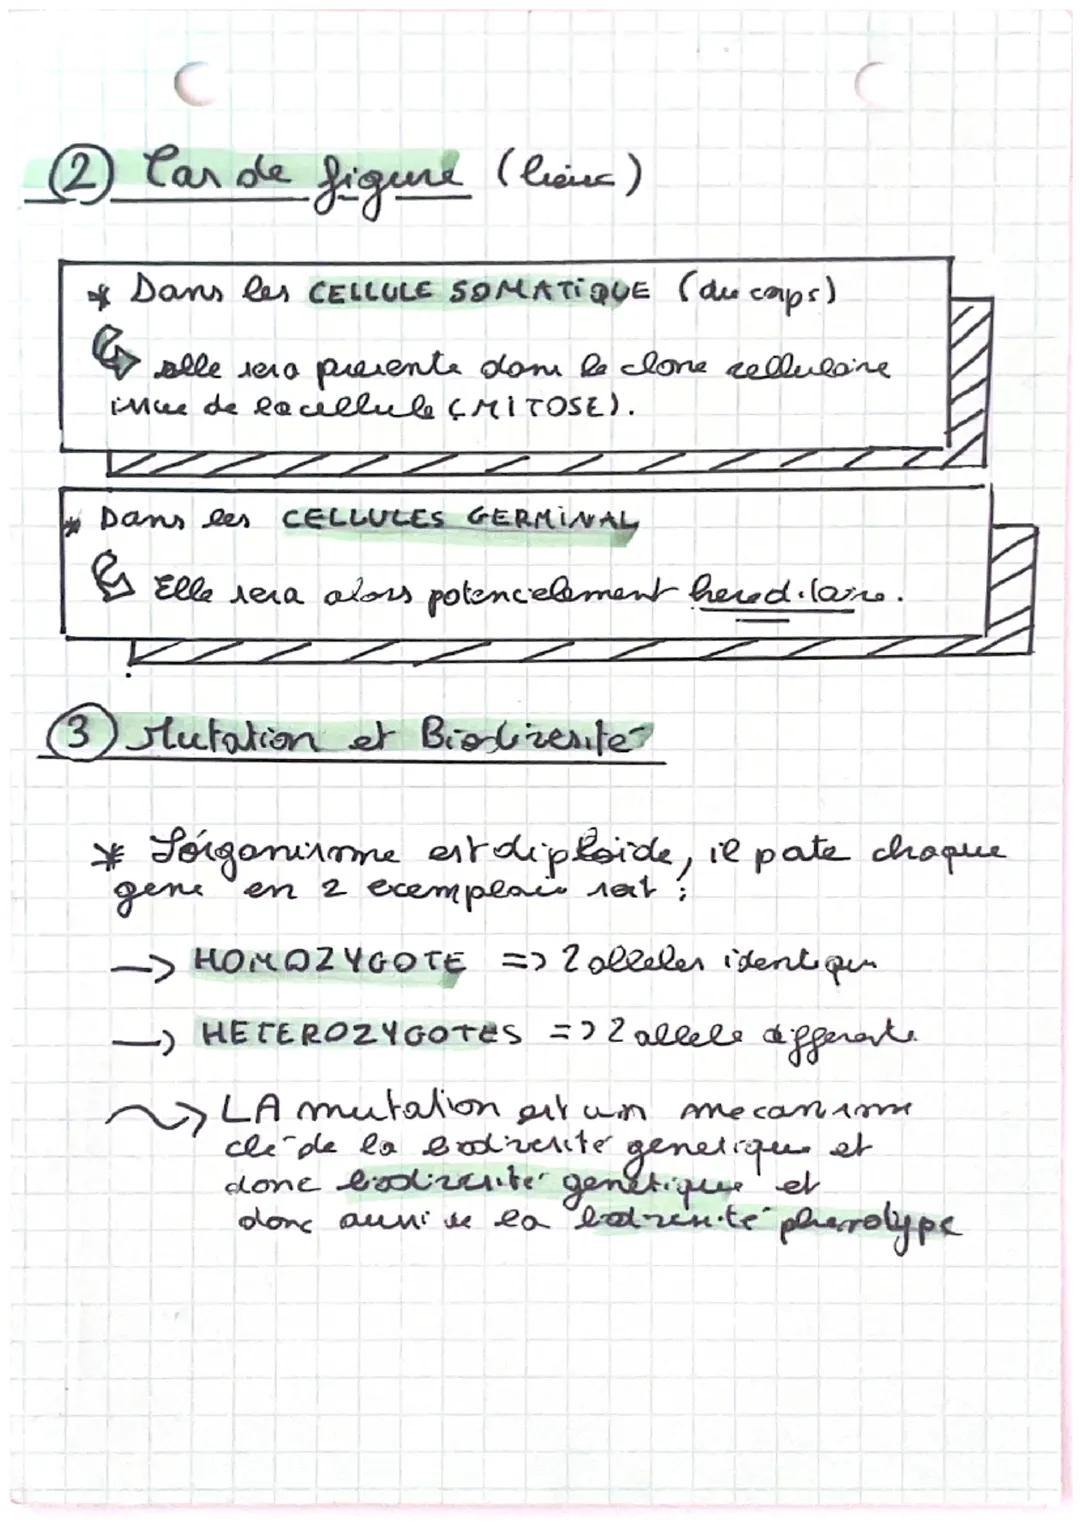 ② Cas de figure (lieux)
* Dans les CELLULE SOMATIQUE (du corps)
elle sera presente dans le clone cellulaire
issue de la cellule (MITOSE).
* Dans les CELLULES GERMINAL
Elle sera alors potencielement hereditaire.
③ Mutation et Biodiversité
* L'organisme est diploïde, il pate chaque
gene en 2 exemplaire soit :
-> HOMOZYGOTE => 2 alleles identique
-> HETEROZYGOTES => 2 allele differente
~> LA mutation est un mecanisme
clé de la biodiversité genetique et
donc biodiversité génétique et
donc aussi de la biodiversité phenotype